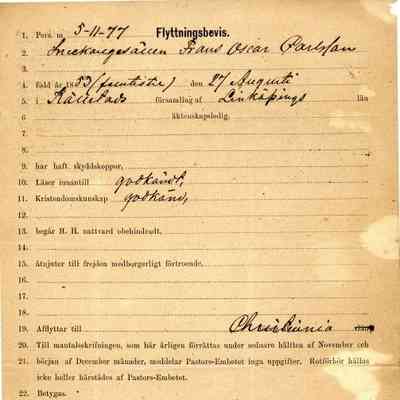 1. Pers. n. 5-11-77 Flyttningsbevis.
2. Snickaregesällen Frans Oscar Carlson
3.
4. född år 1853 (femtiotre) den 27 Augusti
5. i Källstads församling af Linköpings län
6. äktenskapsledig.
7.
8.
9. har haft skyddskoppor,
10. Läser innantill godkändt,
11. Kristendomskunskap godkänd,
12.
13. begår H. H. nattvard obehindradt,
14.
15. åtnjuter till frejden medborgerligt förtroende.
16.
17.
18.
19. Afflyttar till Christiania
20. Till mantalsskrifningen, som här årligen förrättas under sednare hälften af November och
21. början af December månader, meddelar Pastors-Embetet inga uppgifter. Rotförhör hållas
icke heller härstädes af Pastors-Embetet.
22. Betygas.